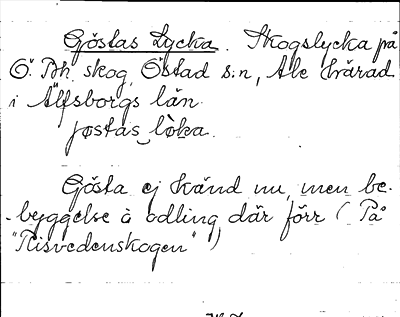 Göstas Lycka. Skogslycka på
Ö. Bh. skog, Östad s:n, Ale härad
i Älfsborgs län.
jøstas lòka.
Gösta ej känd nu, men be-
byggelse à odling, där förr (På
"Risvedenskogen")